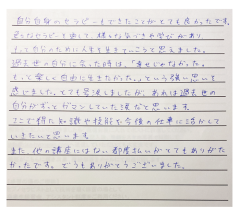 自分自身のセラピーもできたことがとても良かったです。
色々なセラピーを通して、様々な気づきや学びがあり、
もっと自分のために人生を生きていこうって思えました。
過去世の自分に会った時は、「幸せじゃなかった。
もっと楽しく自由に生きたかった。」という強い思いを
感じました。とても号泣しましたが、あれは過去世の
自分がずっとガマンしていた涙だと思います。
ここで得た知識や技術を今後の仕事に活かして
いきたいと思います。
また、他の講座にはない制度もいがとてもありがた
かったです。どうもありがとうございました。